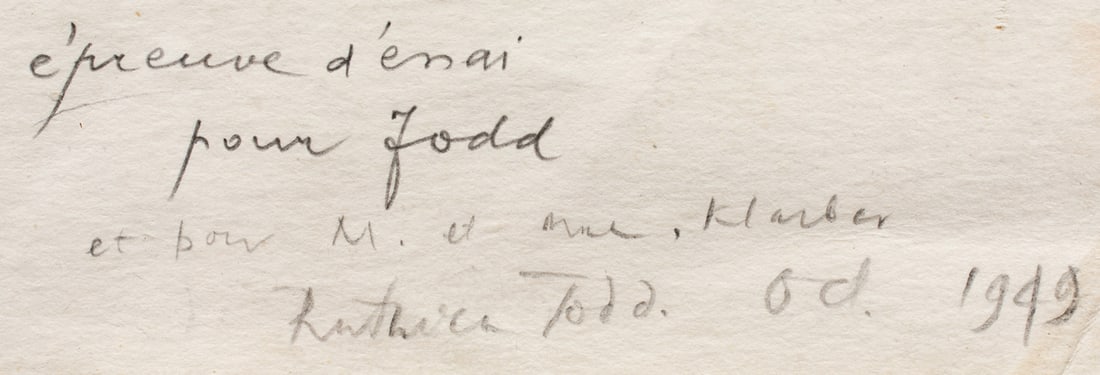 épreuve d'éssai
pour Todd
et pour M. et Mme.
Ruthven Todd. Oct. 1949